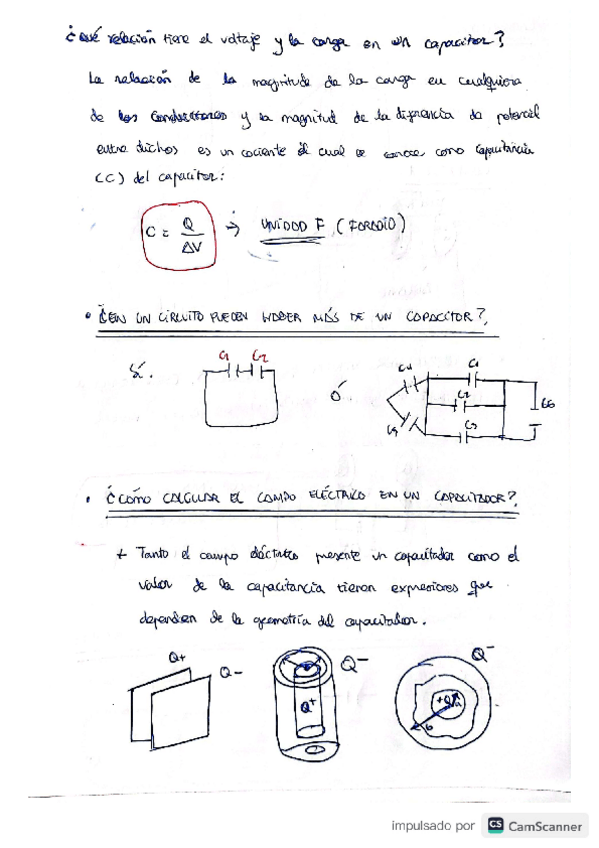 ¿Qué relación tiene el voltaje y la carga en un capacitor?
La relación de la magnitude de la carga en cualquiera
de los conductores y la magnitud de la diferencia de potencial
entre dichos es un cociente el cual se conoce como Capacitancia
(C) del capacitor:
C = Q / ΔV → UNIDAD F, (FARADIO)
• ¿EN UN CIRCUITO PUEDEN HABER MÁS DE UN CAPACITOR?
Sí.
C1 C2
Ó
C4 C1
C2 C6
C5 C3
• ¿CÓMO CALCULAR EL CAMPO ELÉCTRICO EN UN CAPACITADOR?
+ Tanto el campo eléctrico presente un capacitador como el
valor de la capacitancia tienen expresiones que
dependen de la geometría del capacitador.
Q+ Q- Q+ Q- +Q a b Q-
impulsado por CS CamScanner